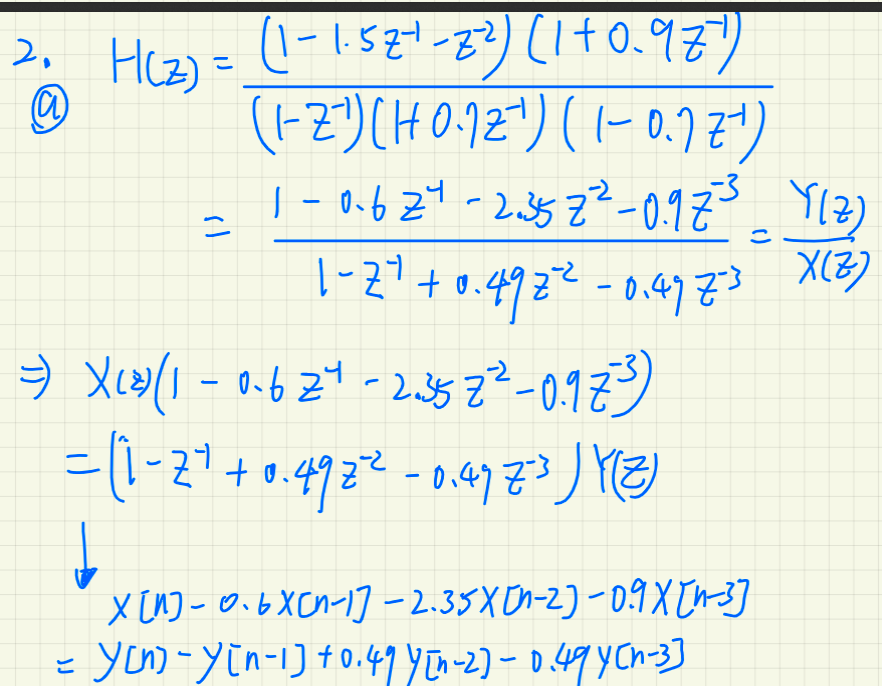 2. H(z) = (1 - 1.5z⁻¹ - z⁻²)(1 + 0.9z⁻¹)
ⓐ (1 - z⁻¹)(1 + 0.7z⁻¹)(1 - 0.7z⁻¹)
= 1 - 0.6z⁻¹ - 2.35z⁻² - 0.9z⁻³ = Y(z)
1 - z⁻¹ + 0.49z⁻² - 0.49z⁻³ X(z)
⇒ X(z)(1 - 0.6z⁻¹ - 2.35z⁻² - 0.9z⁻³)
= (1 - z⁻¹ + 0.49z⁻² - 0.49z⁻³)Y(z)
↓
x[n] - 0.6x[n-1] - 2.35x[n-2] - 0.9x[n-3]
= y[n] - y[n-1] + 0.49y[n-2] - 0.49y[n-3]